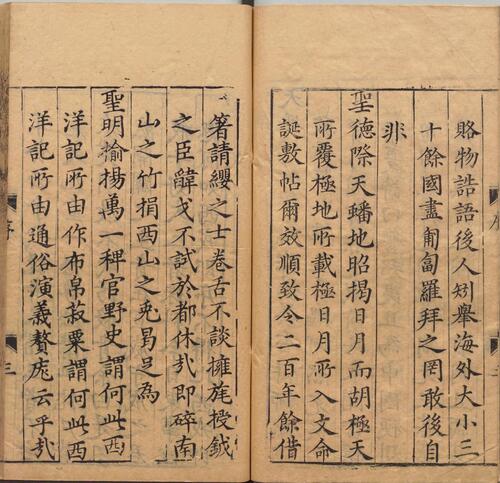 賂物誥語後人矧舉海外大小三
十餘國盡匍匐羅拜之罔敢後自
非
聖德際天蟠地昭揭日月而胡極天
所覆極地所載極日月所入文命
誕敷帖爾效順致令二百年餘借
箸請纓之士卷舌不談擁旄授鉞
之臣韔戈不試於都休哉即碎南
山之竹捐西山之兎曷足為
聖明揄揚萬一稗官野史謂何此西
洋記所由作布帛菽粟謂何此西
洋記所由通俗演義贅庬云乎哉
序
三